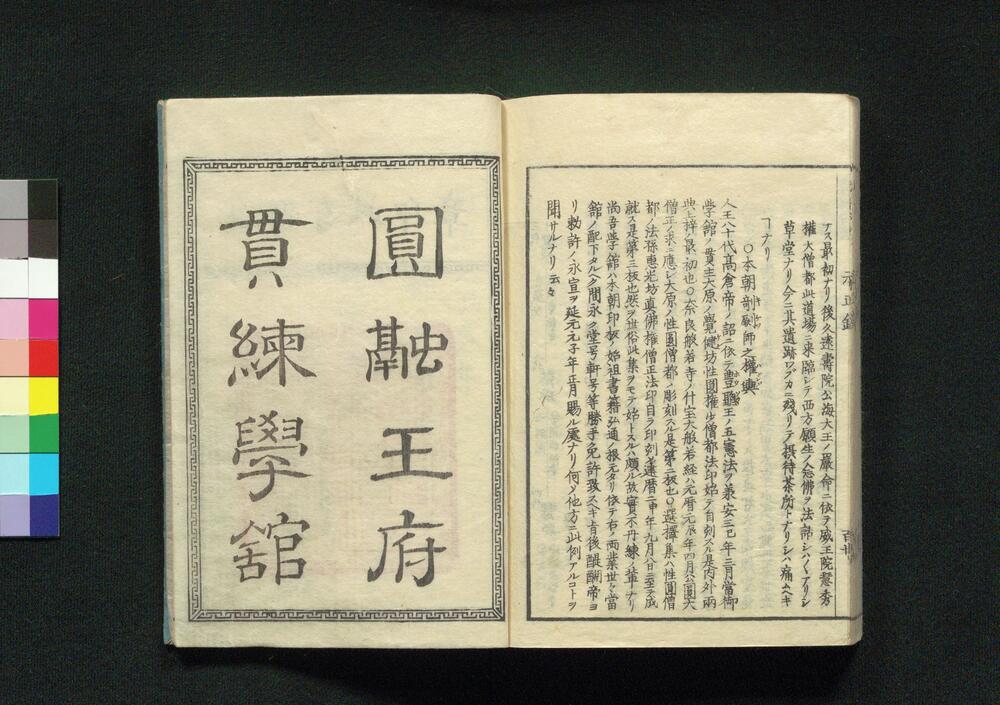 ナス最初ナリ後久遠壽院公海大王ノ嚴命ニ依テ威王院慧秀
權大僧都此道場ニ來臨シテ西方願生ノ念佛ヲ法師シハ〱アリシ
草堂ナリ今ニ其遺跡ワツカニ残リテ攝待茶所トナリシハ痛ムヘキ
ヿナリ
○本朝剞劂師之權輿
人王八十代髙倉帝ノ詔ニ依テ豊聰王ノ五憲法ヲ承安三巳年三月當御
學舘ノ貫主大原ノ覺健坊性圓權少僧都法印始テ自刻スル是内外兩
典上梓ノ最初也○奈良般若寺ノ什宝大般若経ハ元暦元辰年四月公圓大
僧正ノ求ニ應シ大原ノ性圓僧都ノ彫刻スル是第二板也○選擇集ハ性圓僧
都ノ法孫恵光坊真佛權僧正法印自ラ印刻シ建暦二申年九月八日ニ至テ成
就ス是第三板也然ヲ世俗此集ヲモテ始トスルハ頗ル故實不丹練ノ輩ナリ
尚吾学舘ハ本朝印板ノ始祖書籍弘通ノ根元タリ依テ右ノ兩業世々當
舘ノ配下タルヘク間永ク堂号軒号等勝手ク免許致スヘキ旨後醍醐帝ヨ
リ勅許ノ永宣ヲ延元元子年正月賜ル處ナリ何ソ他方ニ此例アルコトヲ
聞サルナリ云々
圓融王府
貫練學舘